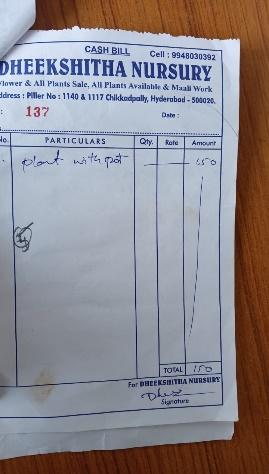 CASH BILL Cell : 9948030392
DHEEKSHITHA NURSURY
Flower & All Plants Sale, All Plants Available & Maali Work
Address : Piller No : 1140 & 1117 Chikkadpally, Hyderabad - 500020.
: 137 Date :
No. PARTICULARS Qty. Rate Amount
plant with pot 150
TOTAL 150
For DHEEKSHITHA NURSURY
Signature